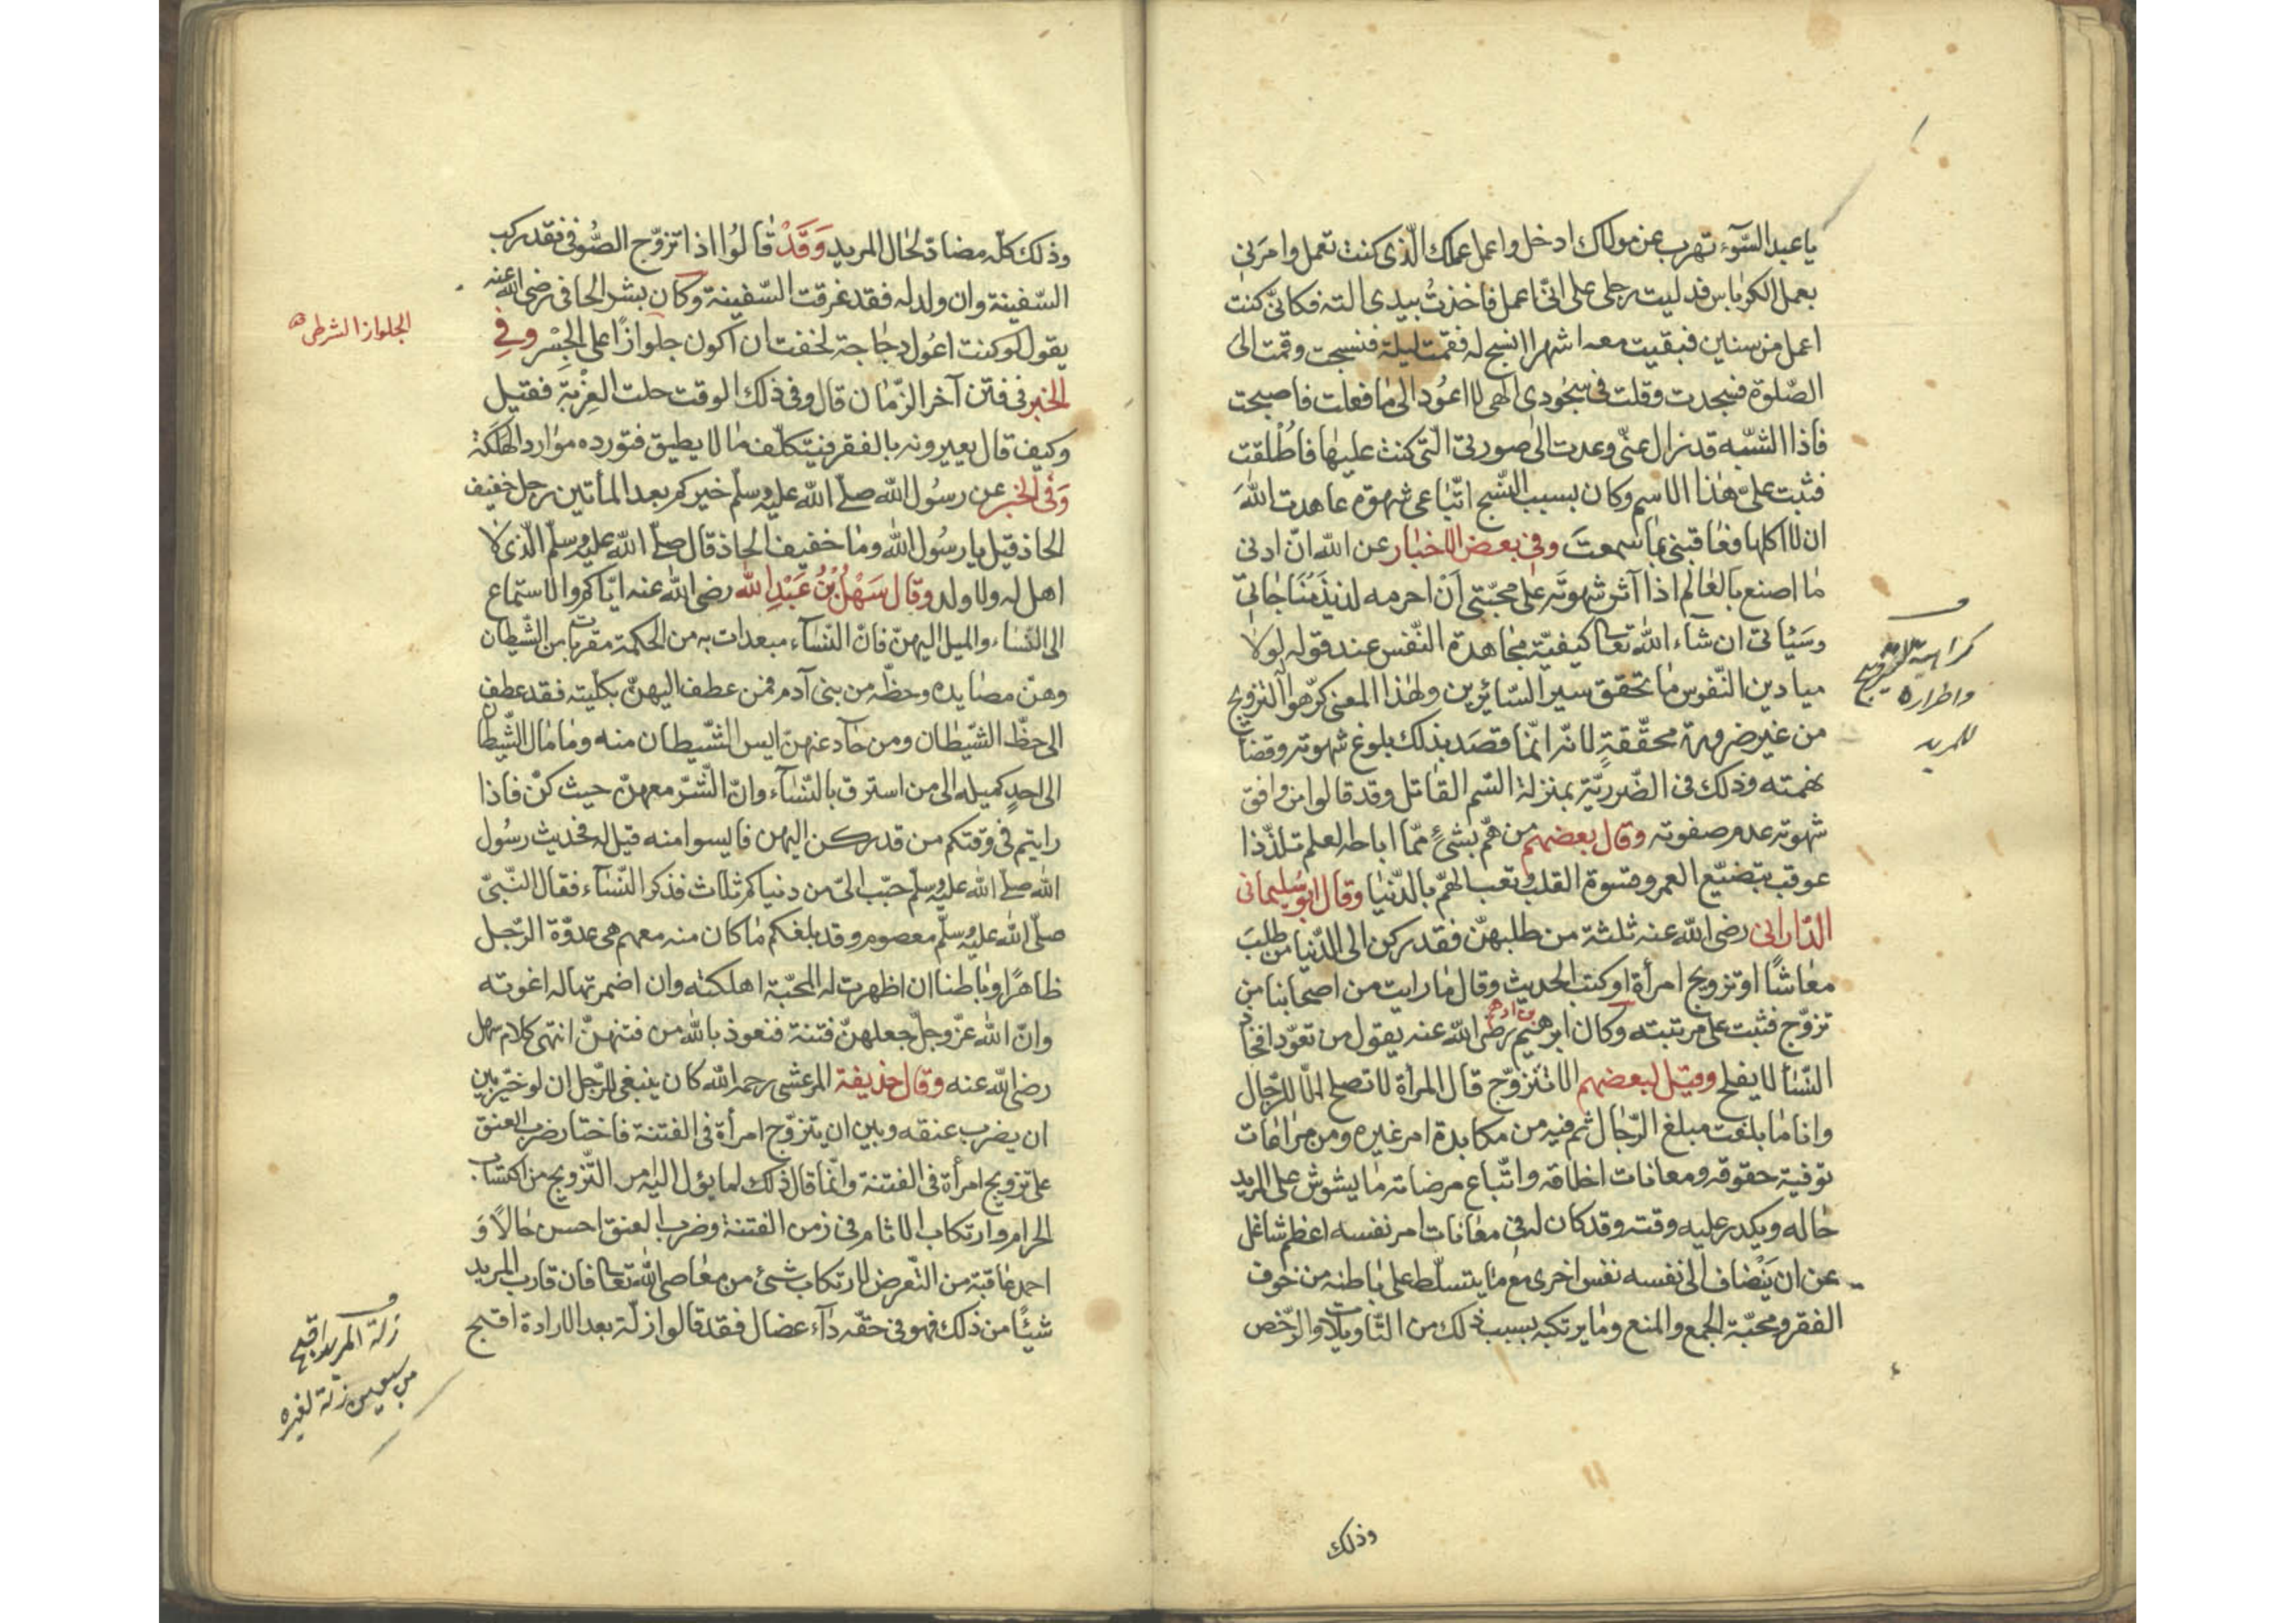 يا عبد السّوء تهرب عن مولاك ادخل واعمل عملك الّذى كنت تعمل وامرنى
بعمل الكرباس فدليت رجلى على انّى اعمل فاخذتُ بيدى الته فكانّى كنت
اعمل من سنين فبقيت معه اشهرا انسج له فقمت ليلة فنسجت وقمت الى
الصّلوة فسجدت وقلت فى سجودى الهى لا اعود الى ما فعلت فاصبحت
فاذا الشّبه قد زال عنّى وعدت الى صورتى الّتى كنت عليها فاُطلقت
فثبت علىّ هذا الاسم وكان بسبب النّسج اتّباعى شهوة عاهدت اللهَ
ان لا اكلها فعاقبنى بما سمعتَ وفى بعض الاخبار عن الله انّ ادنى
ما اصنع بالعالم اذا آثر شهوته على محبّتى اَنْ احرمه لذيذَ مُنَاجاتى
وسَيأتى ان شاء الله تعا كيفيّة مجاهدة النّفس عند قوله لولا
ميادين النّفوس ما تحقق سير السّائرين ولهذا المعنى كرّهوا التزويج
من غير ضرورة محقّقةٍ لانّه انّما قصَد بذلك بلوغ شهوته وقضاء
نهمته وذلك فى الضّرريّة بمنزلة السّم القاتل وقد قالوا من وافق
شهوته عدم صفوته وقال بعضهم من همّ بشئٍ ممّا اباحه العلم تلذّذا
عوقب بتضيّع العمر وقسوة القلب وتعب الهمّ بالدّنيا وقال ابو سُليمانى
الدّارانى رضى الله عنه ثلثة من طلبهنّ فقد ركن الى الدّنيا من طلبَ
معاشًا او تزويج امرأة او كتب الحديث وقال ما رايت من اصحابنا من
تزوّج فثبت على مرتبته وكان ابرهيم بن ادهم رضى الله عنه يقول من تعوّد افخاذ
النّسأ لا يفلح وقيل لبعضهم الا تتزوّج قال المرأة لا تصلح الّا للرّجال
وانا ما بلغت مبلغ الرّجال ثم فيه من مكابدة امر غيره ومن مراعات
توفية حقوقه ومعانات اخلاقه واتّباع مرضاته ما يشوش على المريد
حاله ويكدر عليه وقته وقد كان له فى معانات امر نفسه اعظم شاغل
عن ان يَنْضاف الى نفسه نفس اخرى مع ما يتسلّط على باطنه من خوف
الفقر ومحبّة الجمع والمنع وما يرتكبه بسبب ذلك من التّاويلات والرّخص
وذلك
كراهية التزويج
واضراره
للمريد
وذلك كلّه مضادّ لحال المريد وَقَدْ قالوُا اذا تزوّج الصّوفى فقد ركب
السّفينة وان ولد له فقد غرقت السّفينة وكان بشر الحافى رضى الله عنه
يقول لو كنت اعُول دجاجة لخفت ان اكون جلوازًا على الجِسْر وفِى
الخبر فى فتن آخر الزّمان قال وفى ذلك الوقت حلت العِزْبَة فقيل
وكيف قال يعيرونه بالفقر فيتكلّف ما لا يطيق فتورده موارد الهَلَكَة
وَفى الخبر عن رسُول الله صلّى الله عليه وسلّم خيركم بعد المأتين رجل خفيف
الحاذ قيل يا رسُول الله وما خفيف الحاذ قال صلّى الله عليه وسلّم الّذى لا
اهل له ولا ولد وقال سَهْلُ بْنُ عَبْدِ الله رضى الله عنه ايّاكم والاستماع
الى النّساء والميل اليهنّ فانّ النّساء مبعدات به من الحكمة مقربات من الشّيطان
وهنّ مصايده وحظّه من بنى آدم فمن عطف اليهنّ بكلّيته فقد عطف
الى حظّ الشّيطان ومن حاد عنهنّ ايس الشّيطان منه وما مال الشّيطان
الى احدٍ كميله الى من استرق بالنّساء وانّ الشّرّ معهنّ حيث كنّ فاذا
رايتم فى وقتكم من قد ركن اليهن فايسوا منه قيل له فحديث رسُول
الله صلّى الله عليه وسلّم حبّب الىّ من دنياكم ثلاث فذكر النّساء فقال النّبىّ
صلّى الله عليه وسلّم معصوم وقد بلغكم ما كان منه معهم هى عدوّة الرّجل
ظاهرًا وباطنا ان اظهرت له المحبّة اهلكته وان اضمرتها له اغوته
وانّ الله عزّ وجلّ جعلهنّ فتنة فنعوذ بالله من فتنهنّ انتهى كلام سهل
رضى الله عنه وقال حذيفة المرعشى رحمه الله كان ينبغى للرّجل ان لو خيّر بين
ان يضرب عنقه وبين ان يتزوّج امرأة فى الفتنة فاختار ضرب العنق
على تزويج امرأة فى الفتنة وانّما قال ذلك لما يؤل اليه امر التّزويج من اكتساب
الحرام وارتكاب الاثام فى زمن الفتنة وضرب العنق احسن حالًا وَ
احمد عاقبة من التّعرض لارتكاب شىئ من معاصى الله تعا فان قارب المريد
شيئًا من ذلك فهو فى حقّه دآء عضال فقد قالوا زلّة بعد الارادة اقبح
الجلواز الشرطى
زلة المريد اقبح
من سبعين زلة لغيره